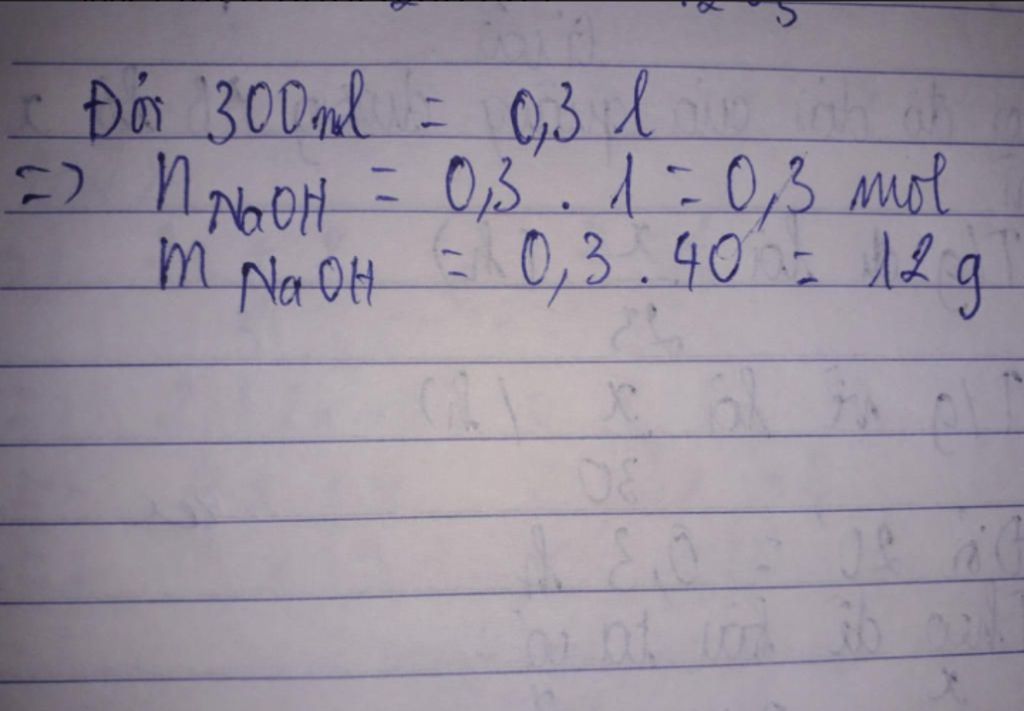 Đổi 300ml = 0,3 l
=> n NaOH = 0,3 . 1 = 0,3 mol
m NaOH = 0,3 . 40 = 12 g